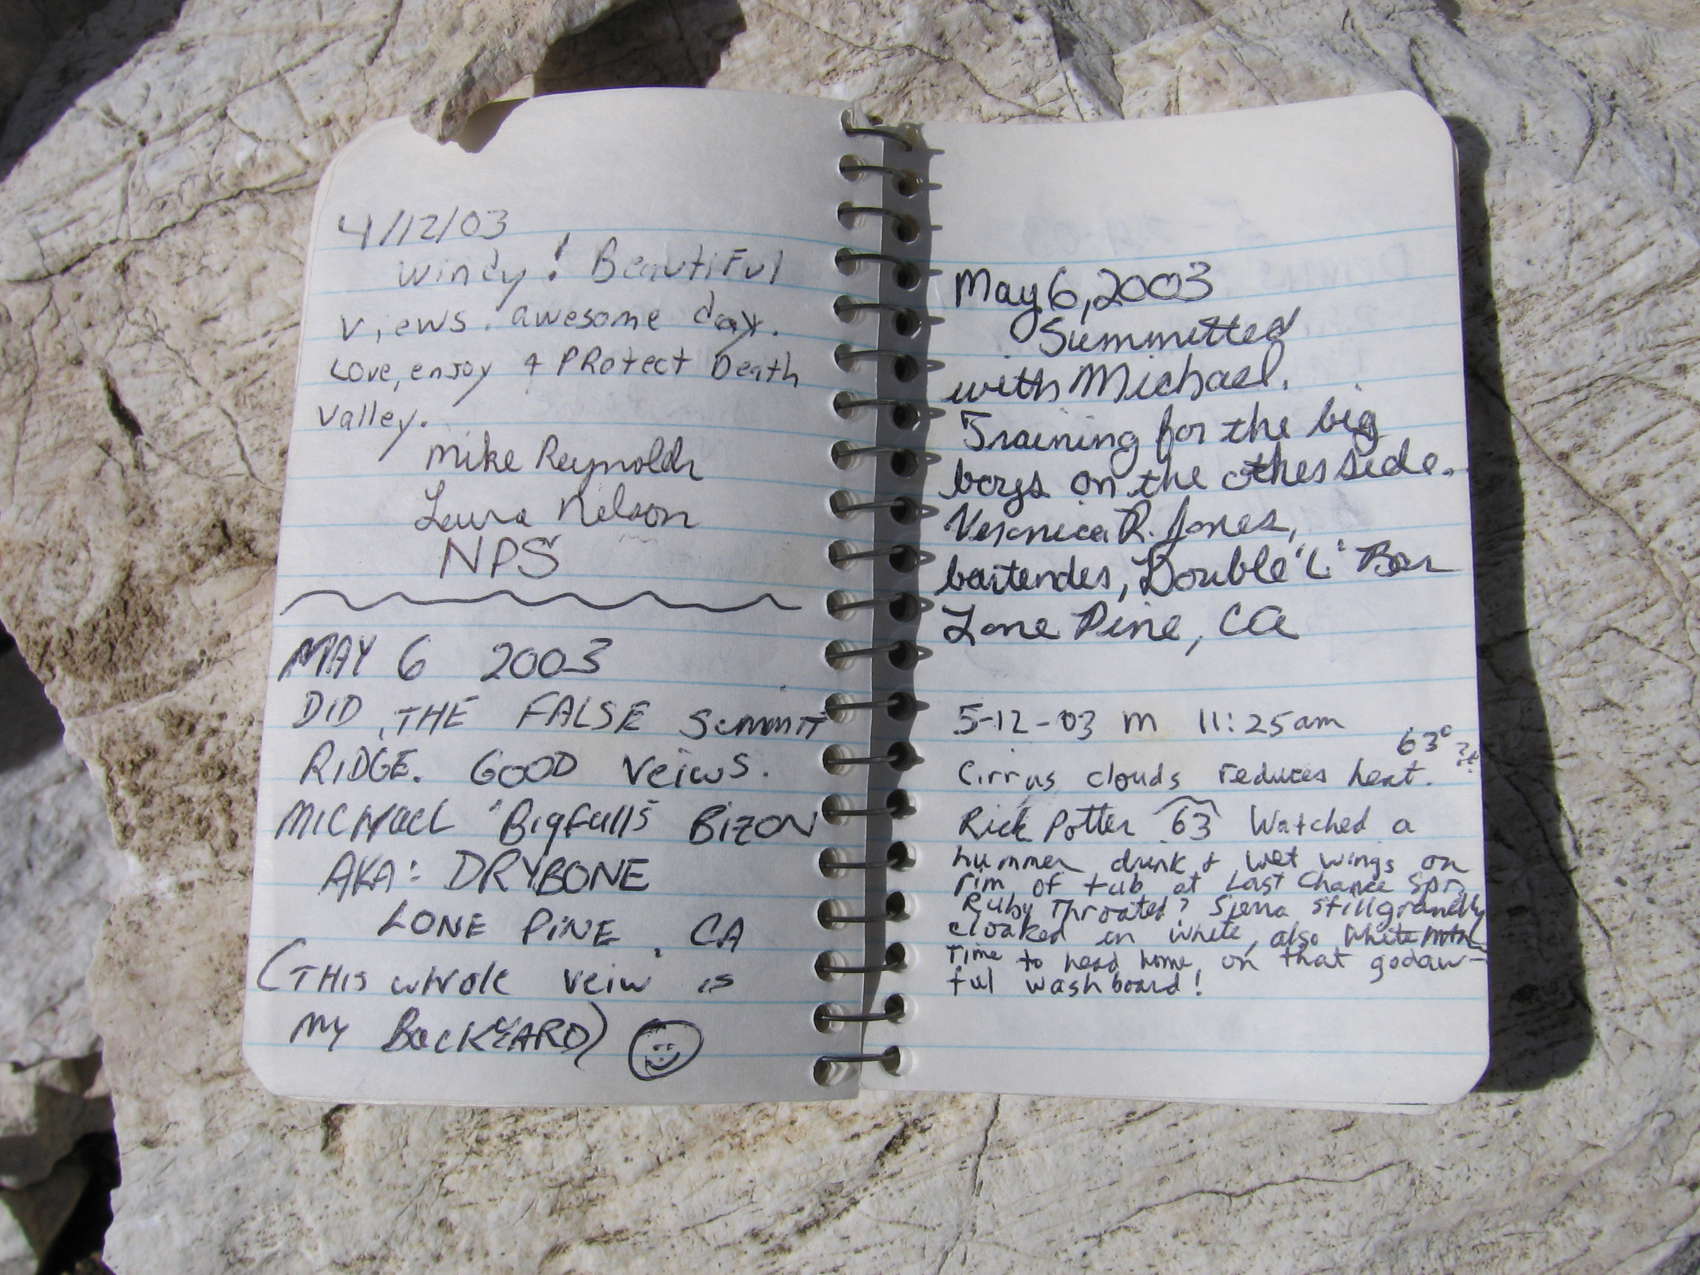 4/12/03
Windy! Beautiful
views. awesome day.
Love, enjoy + PRotect Death
Valley.
Mike Reynolds
Laura Nelson
NPS
MAY 6 2003
DID THE FALSE SummiT
RIDGE. GOOD VeiwS.
MICHAEL "Bigfalls" BIZON
AKA: DRYBONE
LONE PINE, CA
(THIS wHole veiw is
MY BackYARD)
May 6, 2003
Summitted
with Michael.
Training for the big
boys on the other side.
Veronica R. Jones,
bartender, Double "L" Bar
Lone Pine, CA
5-12-03 m 11:25am
63°
Cirrus clouds reduces heat.
Rick Potter 63 Watched a
hummer drink & wet wings on
rim of tub at Last Chance Spr.
Ruby Throated? Sierra still grandly
cloaked in white, also White Mtns
Time to head home, on that godaw-
ful washboard!